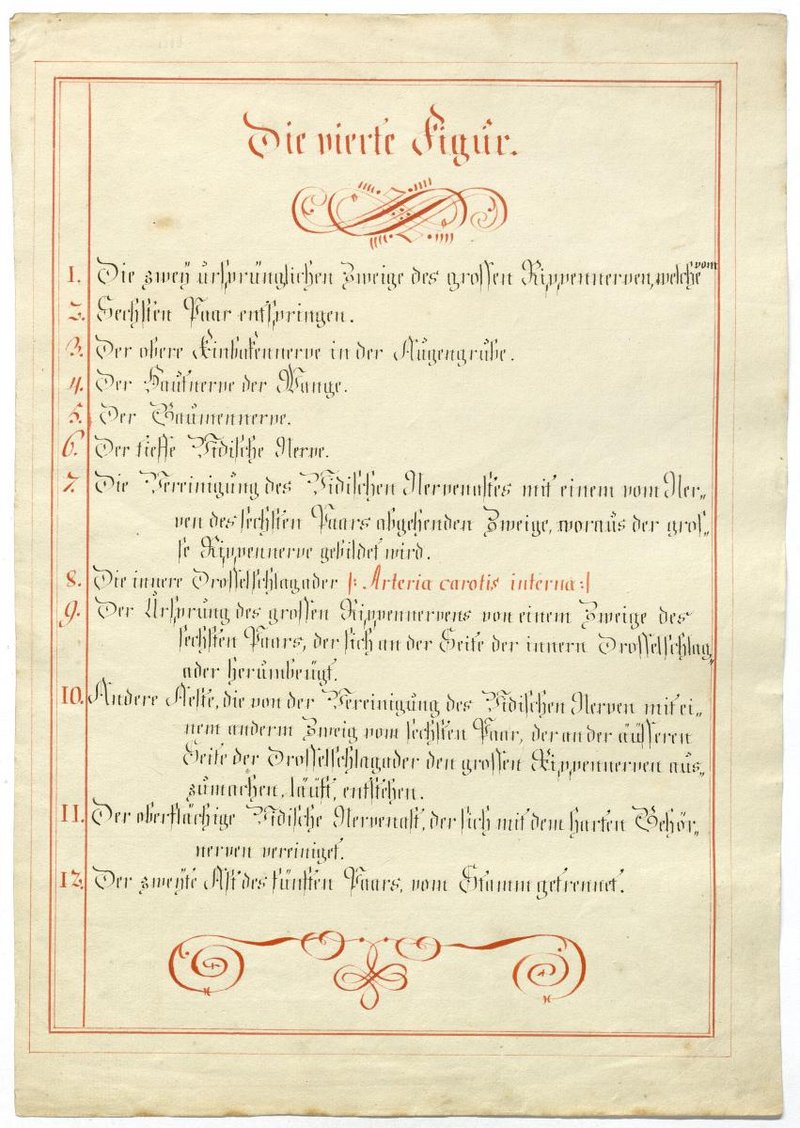 Die vierte Figur.
1. Die zweÿ ursprünglichen Zweige des grossen Rippennerven, welche vom
2. Sechsten Paar entspringen.
3. Der obere Kinbakennerve in der Augengrube.
4. Der Hautnerve der Wange.
5. Der Gaumennerve.
6. Der tieffe Vidische Nerve.
7. Die Vereinigung des Vidischen Nervenastes mit einem vom Ner„
ven des sechsten Paars abgehenden Zweige, woraus der gros„
se Rippennerve gebildet wird.
8. Die innere Drosselschlagader |: Arteria carotis interna :|
9. Der Ursprung des grossen Rippennervens von einem Zweige des
sechsten Paars, der sich an der Seite der innern Drosselschlag„
ader herumbeugt.
10. Andere Aeste, die von der Vereinigung des Vidischen Nerven mit ei„
nem anderm Zweig vom sechsten Paar, der an der äüsseren
Seite der Drosselschlagader den grossen Rippennerven aus„
zumachen, läüft, entstehen.
11. Der oberflächige Vidische Nervenast, der sich mit dem harten Gehör„
nerven vereiniget.
12. Der zweÿte Ast des fünften Paars, vom Stamm getrennet.